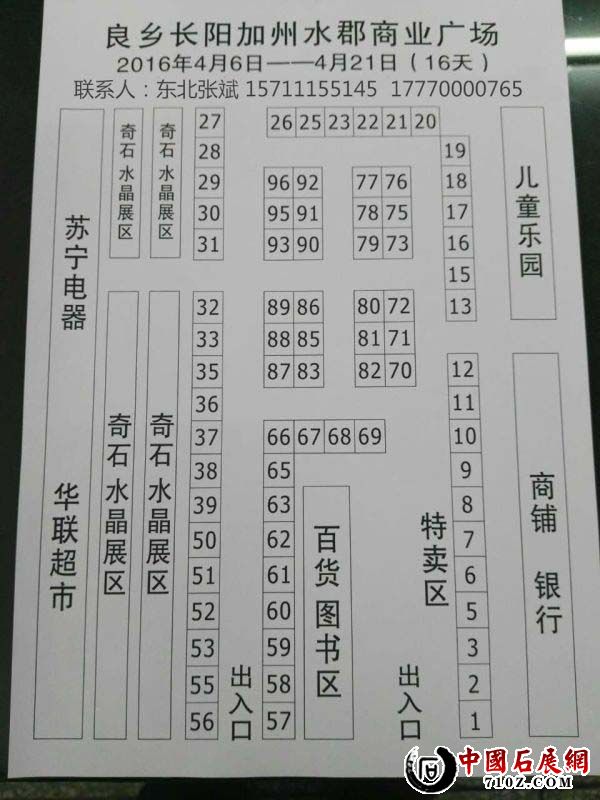 良乡长阳加州水郡商业广场
2016年4月6日——4月21日（16天）
联系人：东北张斌 15711155145 17770000765
苏宁电器
华联超市
奇石 水晶展区
奇石 水晶展区
奇石 水晶展区
奇石 水晶展区
27
28
29
30
31
32
33
35
36
37
38
39
50
51
52
53
55
56
出入口
26 25 23 22 21 20
96 92
95 91
93 90
77 76
78 75
79 73
89 86
88 85
87 83
80 72
81 71
82 70
66 67 68 69
65
63
62
61
60
59
58
57
百货 图书区
出入口
特卖区
19
18
17
16
15
13
12
11
10
9
8
7
6
5
3
2
1
儿童乐园
商铺 银行
中國石展網
710Z.COM